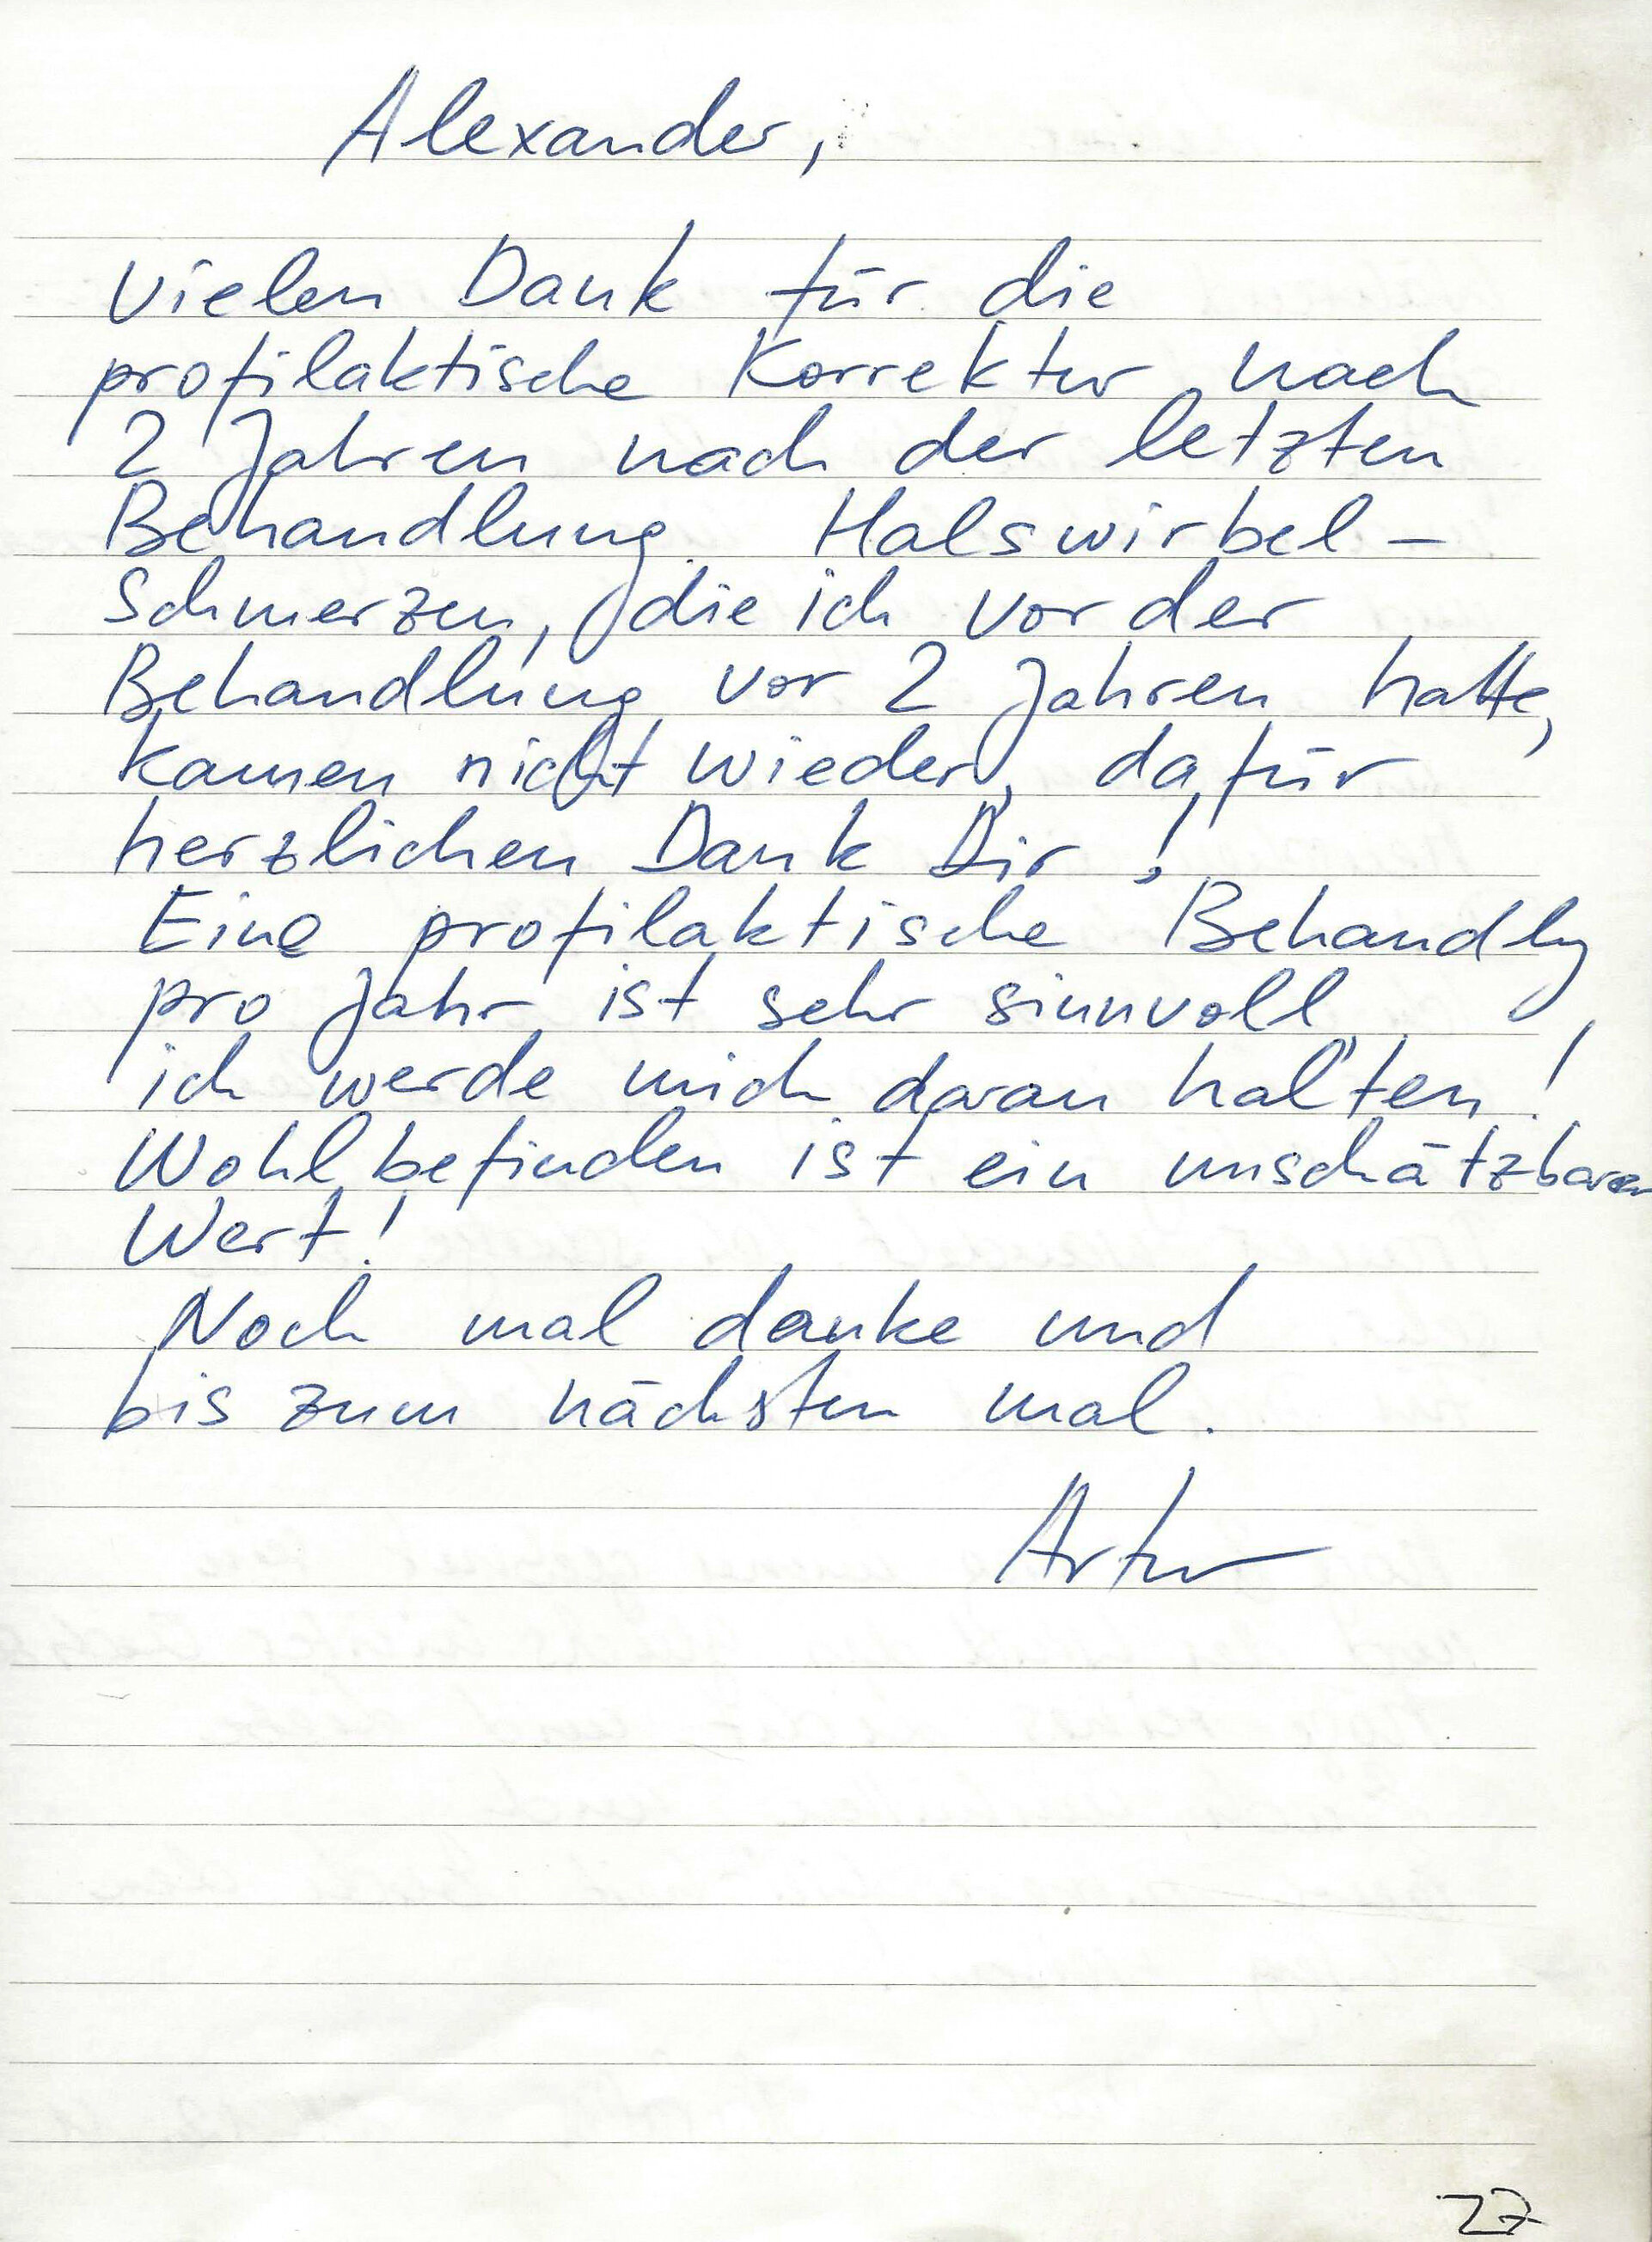 Alexander,
Vielen Dank für die
profilaktische Korrektur nach
2 Jahren nach der letzten
Behandlung. Halswirbel-
schmerzen, die ich vor der
Behandlung vor 2 Jahren hatte,
kamen nicht wieder, dafür
herzlichen Dank Dir!
Eine profilaktische Behandlg
pro Jahr ist sehr sinnvoll,
ich werde mich daran halten!
Wohlbefinden ist ein unschätzbarer
Wert!
Noch mal danke und
bis zum nächsten mal.
Artur
27